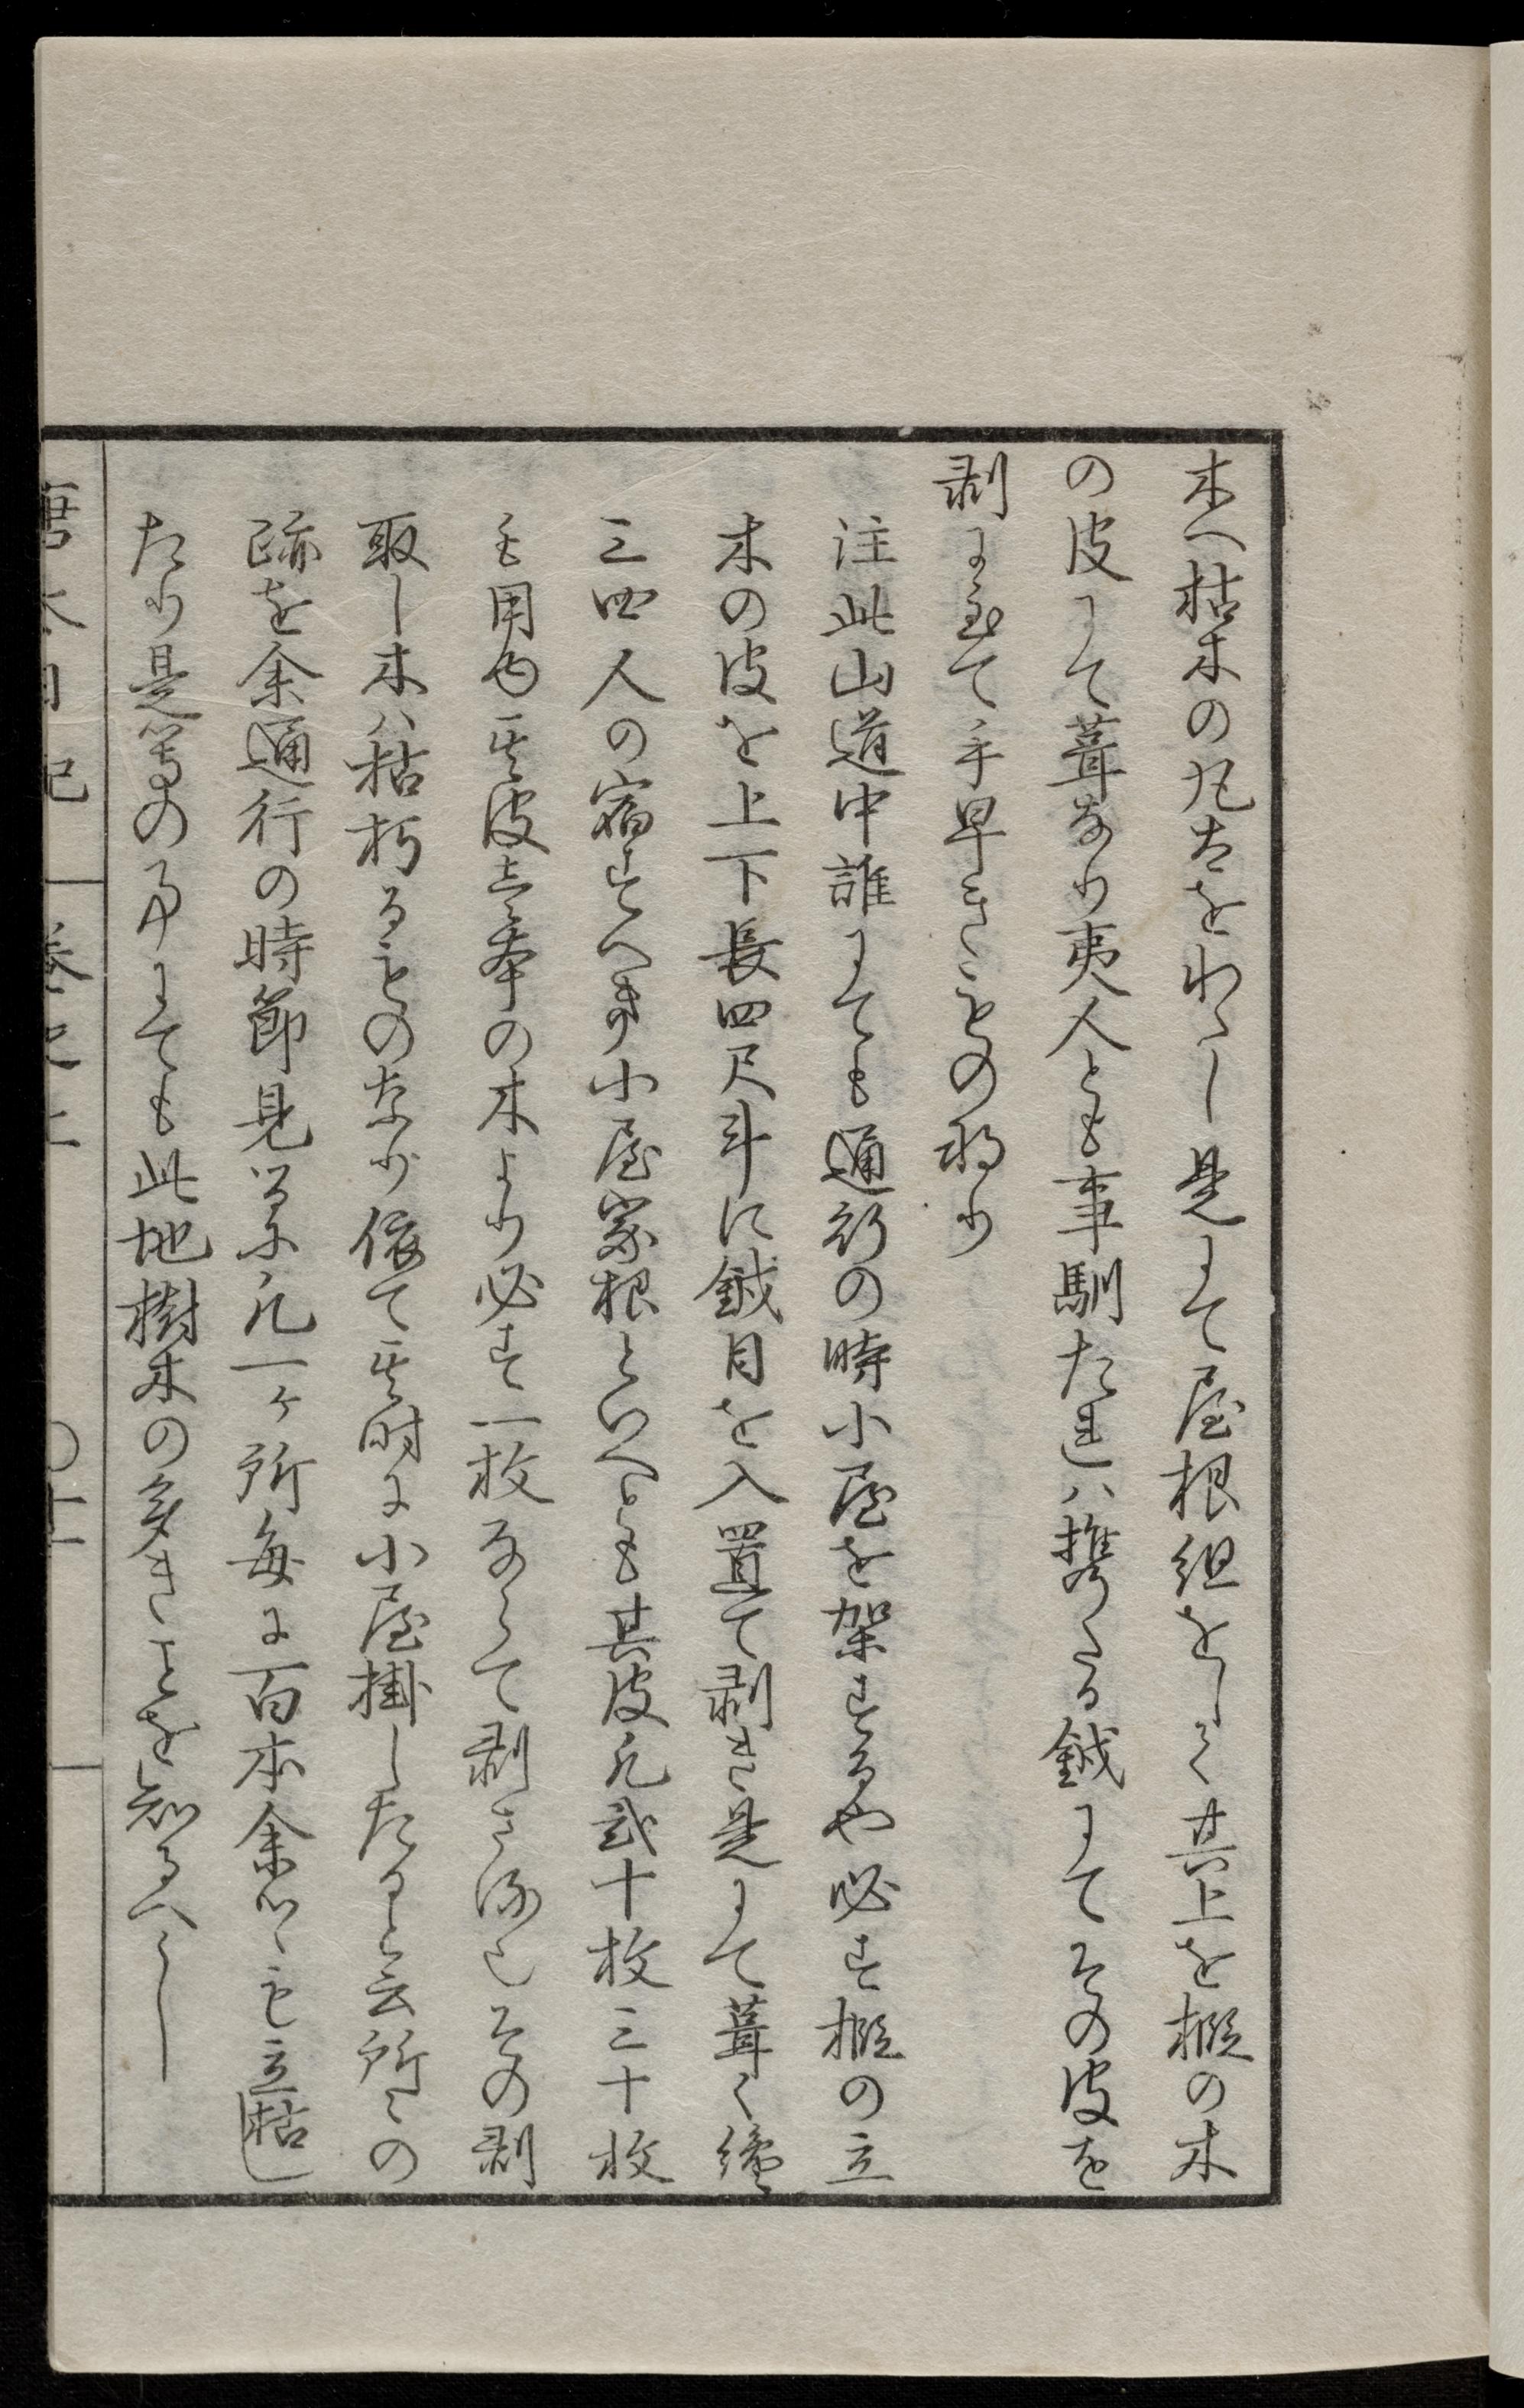 木へ枯木の丸太をわたし是にて屋根組をして其上を椴の木
の皮にて葺なり夷人とも事馴たれハ携たる鉞にてその皮を
剥に至て手早きものなり
注此山道中誰にても通行の時小屋を架するや必す椴の立
木の皮を上下長四尺斗に鉞目を入置て剥き是にて葺く纔
三四人の宿すへき小屋家根といへとも其皮凡弐十枚三十枚
も用ゆ其皮壱本の木より必す一枚ならて剥さる也その剥
取し木ハ枯朽るものなり依て其時に小屋掛したると云所々の
跡を余通行の時節見るに凡一ケ所毎に百本余つゝも立枯し
たり是等の事にても此地樹木の多きことを知るへし
唐太日記 巻之上 〇十一